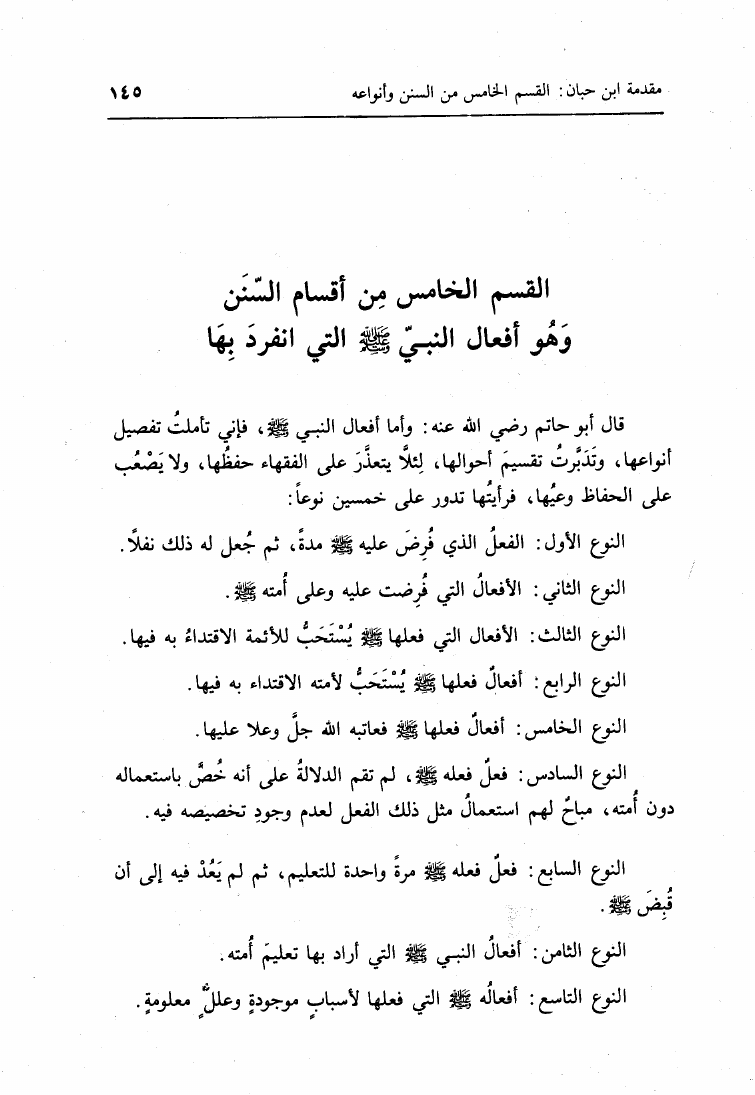 مقدمة ابن حبان: القسم الخامس من السنن وأنواعه ١٤٥
القسم الخامس مِن أقسام السّنَن
وَهُو أفعال النبيّ ﷺ التي انفردَ بِهَا
قال أبو حاتم رضي الله عنه: وأما أفعال النبي ﷺ، فإني تأملتُ تفصيل
أنواعها، وتَدَبَّرتُ تقسيمَ أحوالها، لِئلَّا يتعذَّرَ على الفقهاء حفظُها، ولا يَصْعُب
على الحفاظ وعيُها، فرأيتُها تدور على خمسين نوعاً:
النوع الأول: الفعلُ الذي فُرِضَ عليه ﷺ مدةً، ثم جُعل له ذلك نفلًا.
النوع الثاني: الأفعالُ التي فُرِضت عليه وعلى أُمته ﷺ.
النوع الثالث: الأفعال التي فعلها ﷺ يُسْتَحَبُّ للأئمة الاقتداءُ به فيها.
النوع الرابع: أفعالٌ فعلها ﷺ يُسْتَحَبُّ لأمته الاقتداء به فيها.
النوع الخامس: أفعالٌ فعلها ﷺ فعاتبه الله جلَّ وعلا عليها.
النوع السادس: فعلٌ فعله ﷺ، لم تقم الدلالةُ على أنه خُصَّ باستعماله
دون أُمته، مباحٌ لهم استعمالُ مثل ذلك الفعل لعدم وجودِ تخصيصه فيه.
النوع السابع: فعلٌ فعله ﷺ مرةً واحدة للتعليم، ثم لم يَعُدْ فيه إلى أن
قُبِضَ ﷺ.
النوع الثامن: أفعالُ النبي ﷺ التي أراد بها تعليمَ أُمته.
النوع التاسع: أفعالُه ﷺ التي فعلها لأسبابٍ موجودةٍ وعللٍ معلومةٍ.